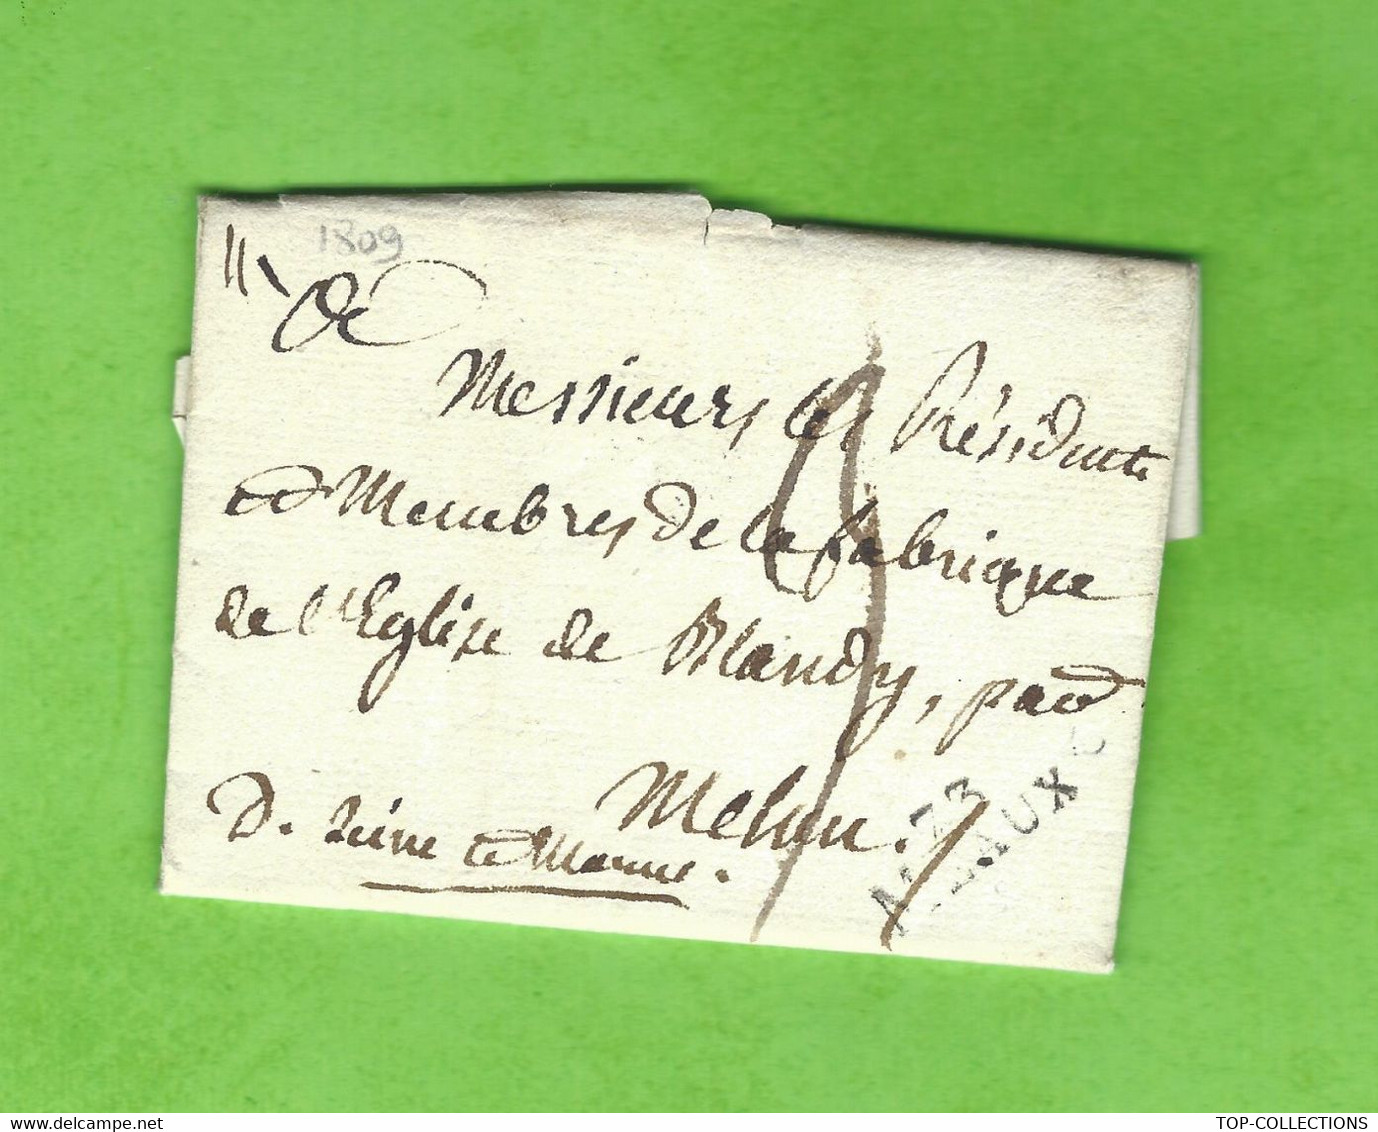 1809
Messieurs les Présidente
et Membres de la fabrique
de l'Eglise de Blandy, par
Melun.
D. Seine et Marne.
73
MEAUX
www.delcampe.net
TOP-COLLECTIONS